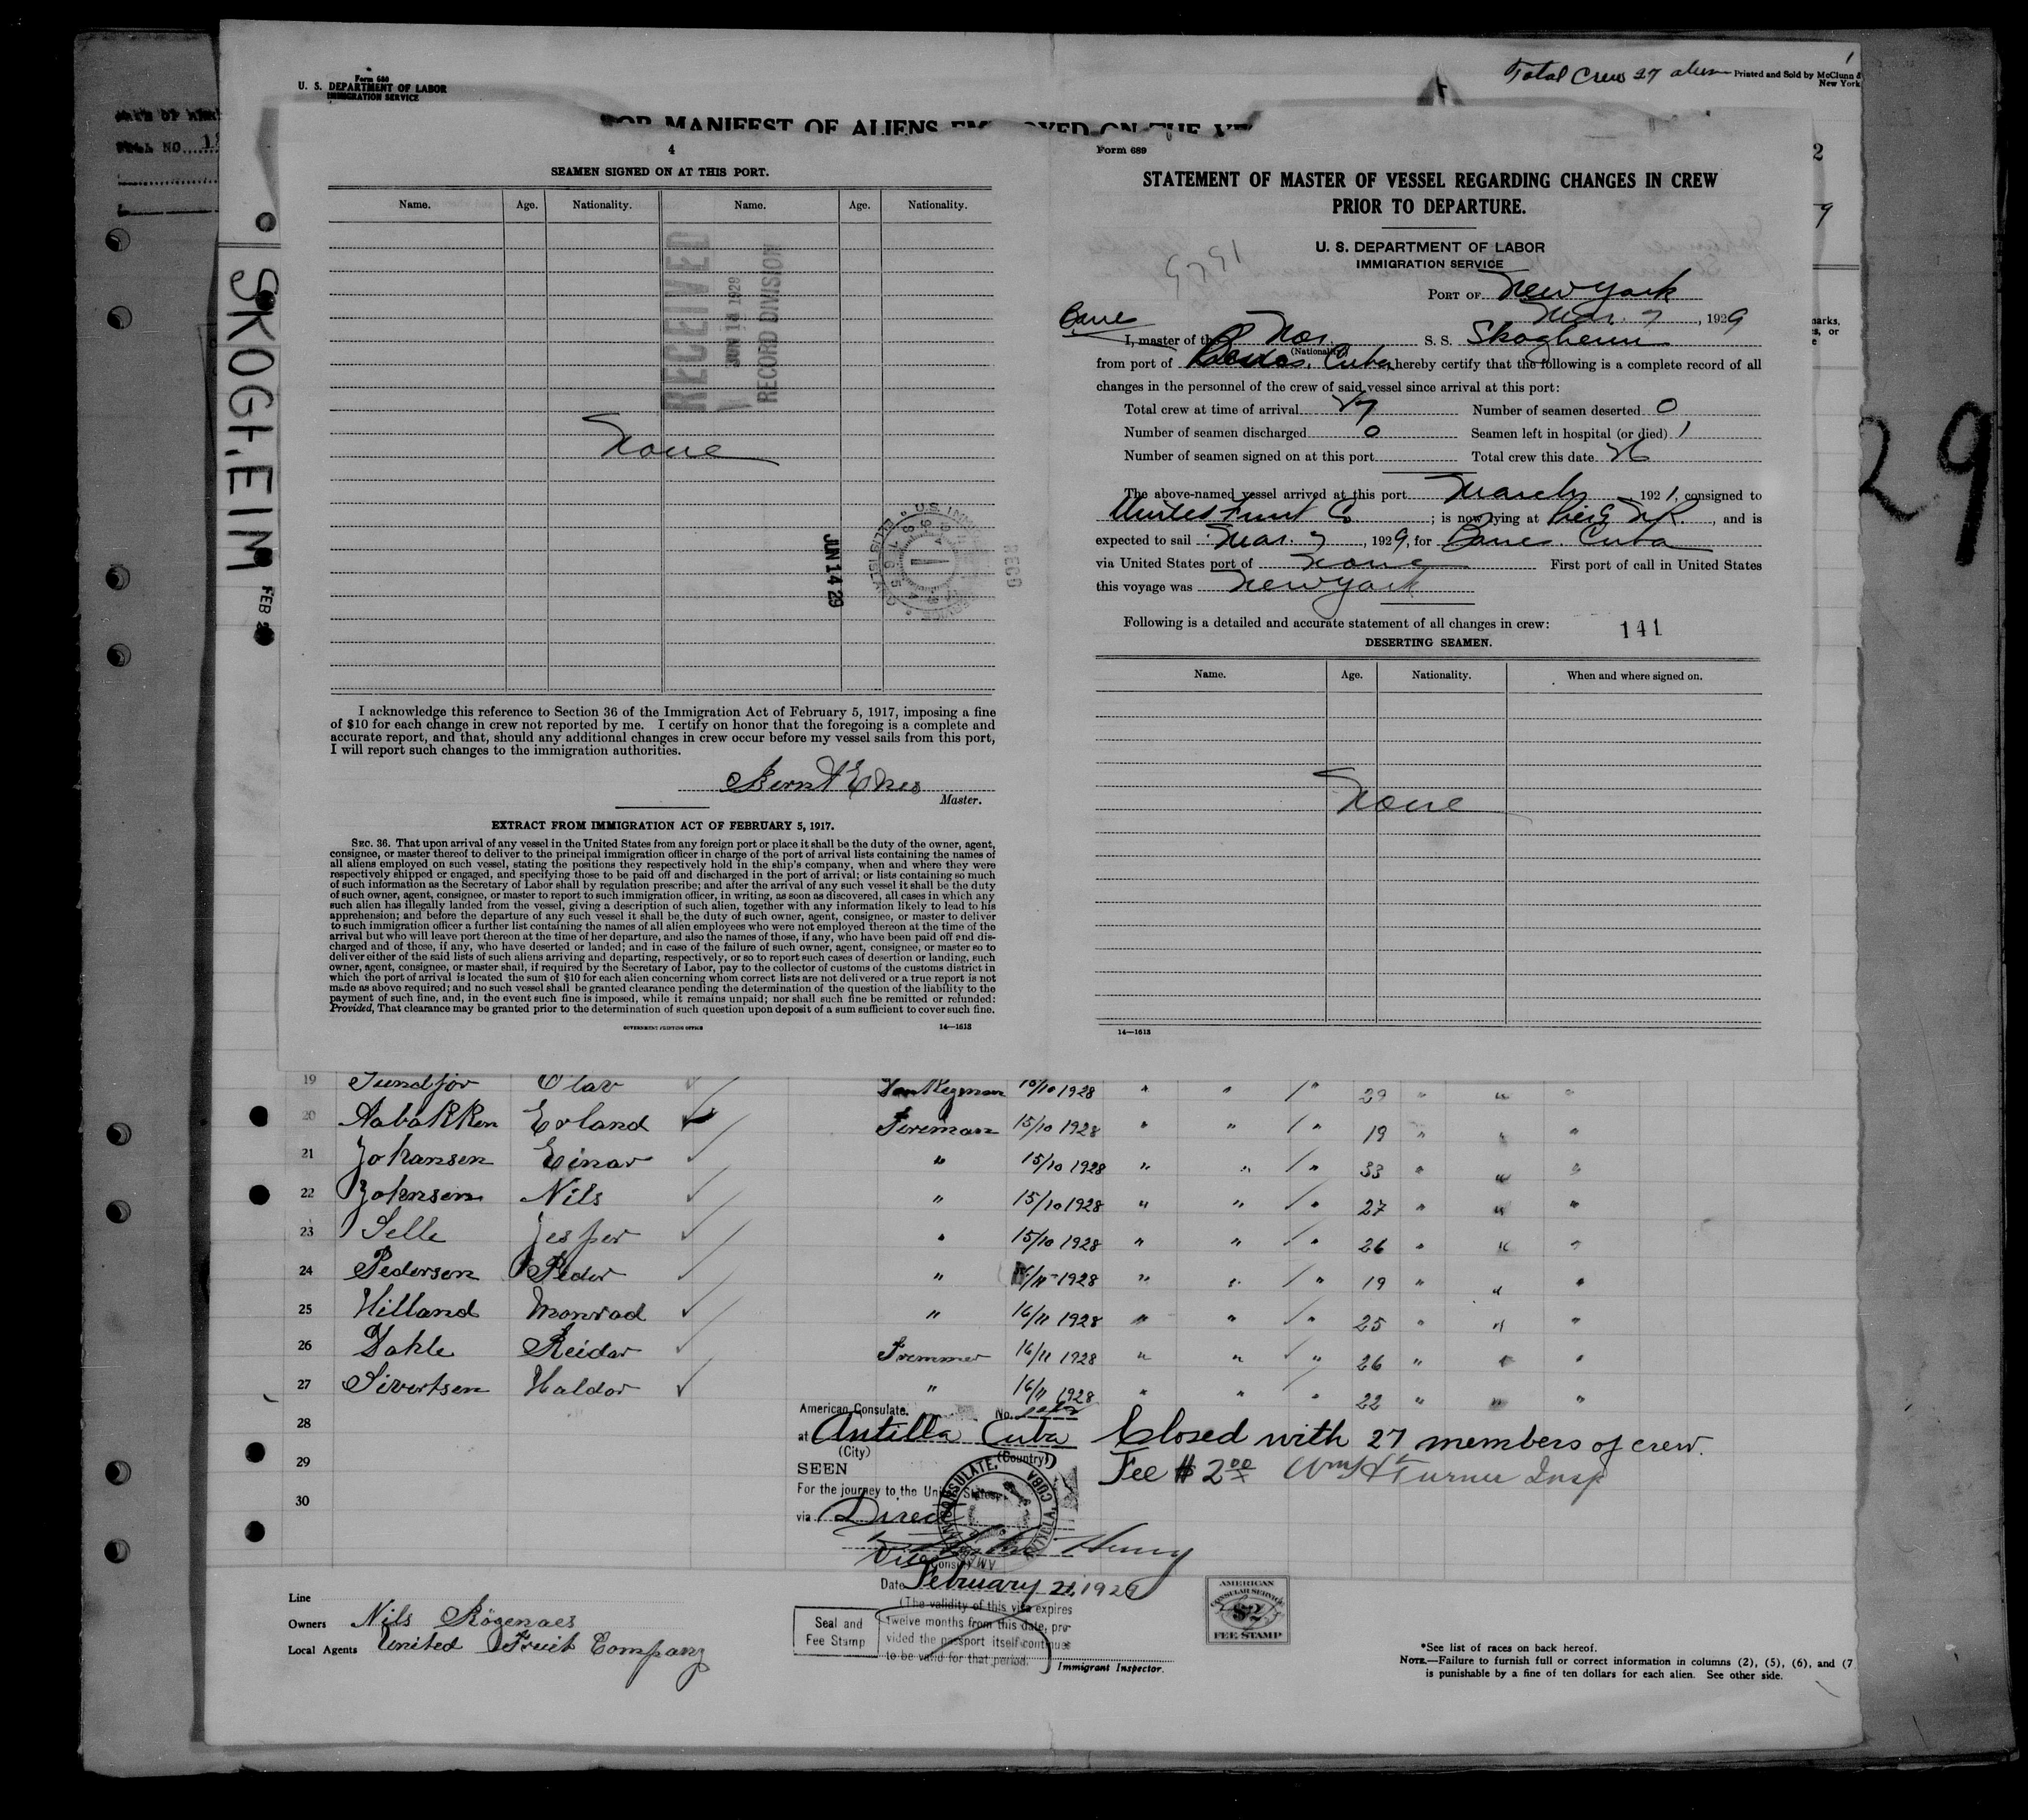 Form 680
U. S. DEPARTMENT OF LABOR
IMMIGRATION SERVICE
Total Crew 27 alien
1
Printed and Sold by McClunn &
New York
SKOGHEIM
FEB
29
4
SEAMEN SIGNED ON AT THIS PORT.
Name. Age. Nationality. Name. Age. Nationality.
RECEIVED
JUN 14 1929
RECORD DIVISION
None
JUN 14 29
RECD
I acknowledge this reference to Section 36 of the Immigration Act of February 5, 1917, imposing a fine
of $10 for each change in crew not reported by me. I certify on honor that the foregoing is a complete and
accurate report, and that, should any additional changes in crew occur before my vessel sails from this port,
I will report such changes to the immigration authorities.
Master.
EXTRACT FROM IMMIGRATION ACT OF FEBRUARY 5, 1917.
SEC. 36. That upon arrival of any vessel in the United States from any foreign port or place it shall be the duty of the owner, agent,
consignee, or master thereof to deliver to the principal immigration officer in charge of the port of arrival lists containing the names of
all aliens employed on such vessel, stating the positions they respectively hold in the ship's company, when and where they were
respectively shipped or engaged, and specifying those to be paid off and discharged in the port of arrival; or lists containing so much
of such information as the Secretary of Labor shall by regulation prescribe; and after the arrival of any such vessel it shall be the duty
of such owner, agent, consignee, or master to report to such immigration officer, in writing, as soon as discovered, all cases in which any
such alien has illegally landed from the vessel, giving a description of such alien, together with any information likely to lead to his
apprehension; and before the departure of any such vessel it shall be the duty of such owner, agent, consignee, or master to deliver
to such immigration officer a further list containing the names of all alien employees who were not employed thereon at the time of the
arrival but who will leave port thereon at the time of her departure, and also the names of those, if any, who have been paid off and dis-
charged and of those, if any, who have deserted or landed; and in case of the failure of such owner, agent, consignee, or master so to
deliver either of the said lists of such aliens arriving and departing, respectively, or so to report such cases of desertion or landing, such
owner, agent, consignee, or master shall, if required by the Secretary of Labor, pay to the collector of customs of the customs district in
which the port of arrival is located the sum of $10 for each alien concerning whom correct lists are not delivered or a true report is not
made as above required; and no such vessel shall be granted clearance pending the determination of the question of the liability to the
payment of such fine, and, in the event such fine is imposed, while it remains unpaid; nor shall such fine be remitted or refunded:
Provided, That clearance may be granted prior to the determination of such question upon deposit of a sum sufficient to cover such fine.
GOVERNMENT PRINTING OFFICE 14—1613
Form 689
STATEMENT OF MASTER OF VESSEL REGARDING CHANGES IN CREW
PRIOR TO DEPARTURE.
U. S. DEPARTMENT OF LABOR
IMMIGRATION SERVICE
PORT OF New York
Mar. 7, 1929
I, master of the Nor S. S. Skogheim
(Nationality)
from port of Cuba, hereby certify that the following is a complete record of all
changes in the personnel of the crew of said vessel since arrival at this port:
Total crew at time of arrival 27 Number of seamen deserted 0
Number of seamen discharged 0 Seamen left in hospital (or died) 1
Number of seamen signed on at this port Total crew this date 26
The above-named vessel arrived at this port March 1, 192 , consigned to
United Fruit Co ; is now lying at Pier 9 N.R. , and is
expected to sail Mar. 7, 1929, for Banes Cuba
via United States port of None First port of call in United States
this voyage was New York
Following is a detailed and accurate statement of all changes in crew: 141
DESERTING SEAMEN.
Name. Age. Nationality. When and where signed on.
None
14—1613
19 Olav Donkeyman 15/10 1928 " " 1 " 29 " " "
20 Aabakken Erland Fireman 15/10 1928 " " 1 " 19 " " "
21 Johansen Einar " 15/10 1928 " " 1 " 33 " " "
22 Johnsen Nils " 15/10 1928 " " 1 " 27 " " "
23 Selle Jesper " 15/10 1928 " " 1 " 26 " " "
24 Pedersen Peder " 16/11 1928 " " 1 " 19 " " "
25 Hilland Monrad " 16/11 1928 " " 1 " 25 " " "
26 Dahle Reidar Trimmer 16/11 1928 " " " 26 " " "
27 Sivertsen Haldor " 16/11 1928 " " " 22 " " "
28
29
30
American Consulate. No.
at Antilla Cuba Closed with 27 members of crew.
(City) (Country)
SEEN Fee $2.00 Wm H Turner Insp
For the journey to the United States,
via Direct
Vice Consul
Date February 21, 1929
(The validity of this visa expires
twelve months from this date, pro-
vided the passport itself continues
to be valid for that period.
Seal and
Fee Stamp
Immigrant Inspector.
AMERICAN
CONSULAR SERVICE
$2
FEE STAMP
Line
Owners Nils Rögenaes
Local Agents United Fruit Company
*See list of races on back hereof.
NOTE.—Failure to furnish full or correct information in columns (2), (5), (6), and (7
is punishable by a fine of ten dollars for each alien. See other side.